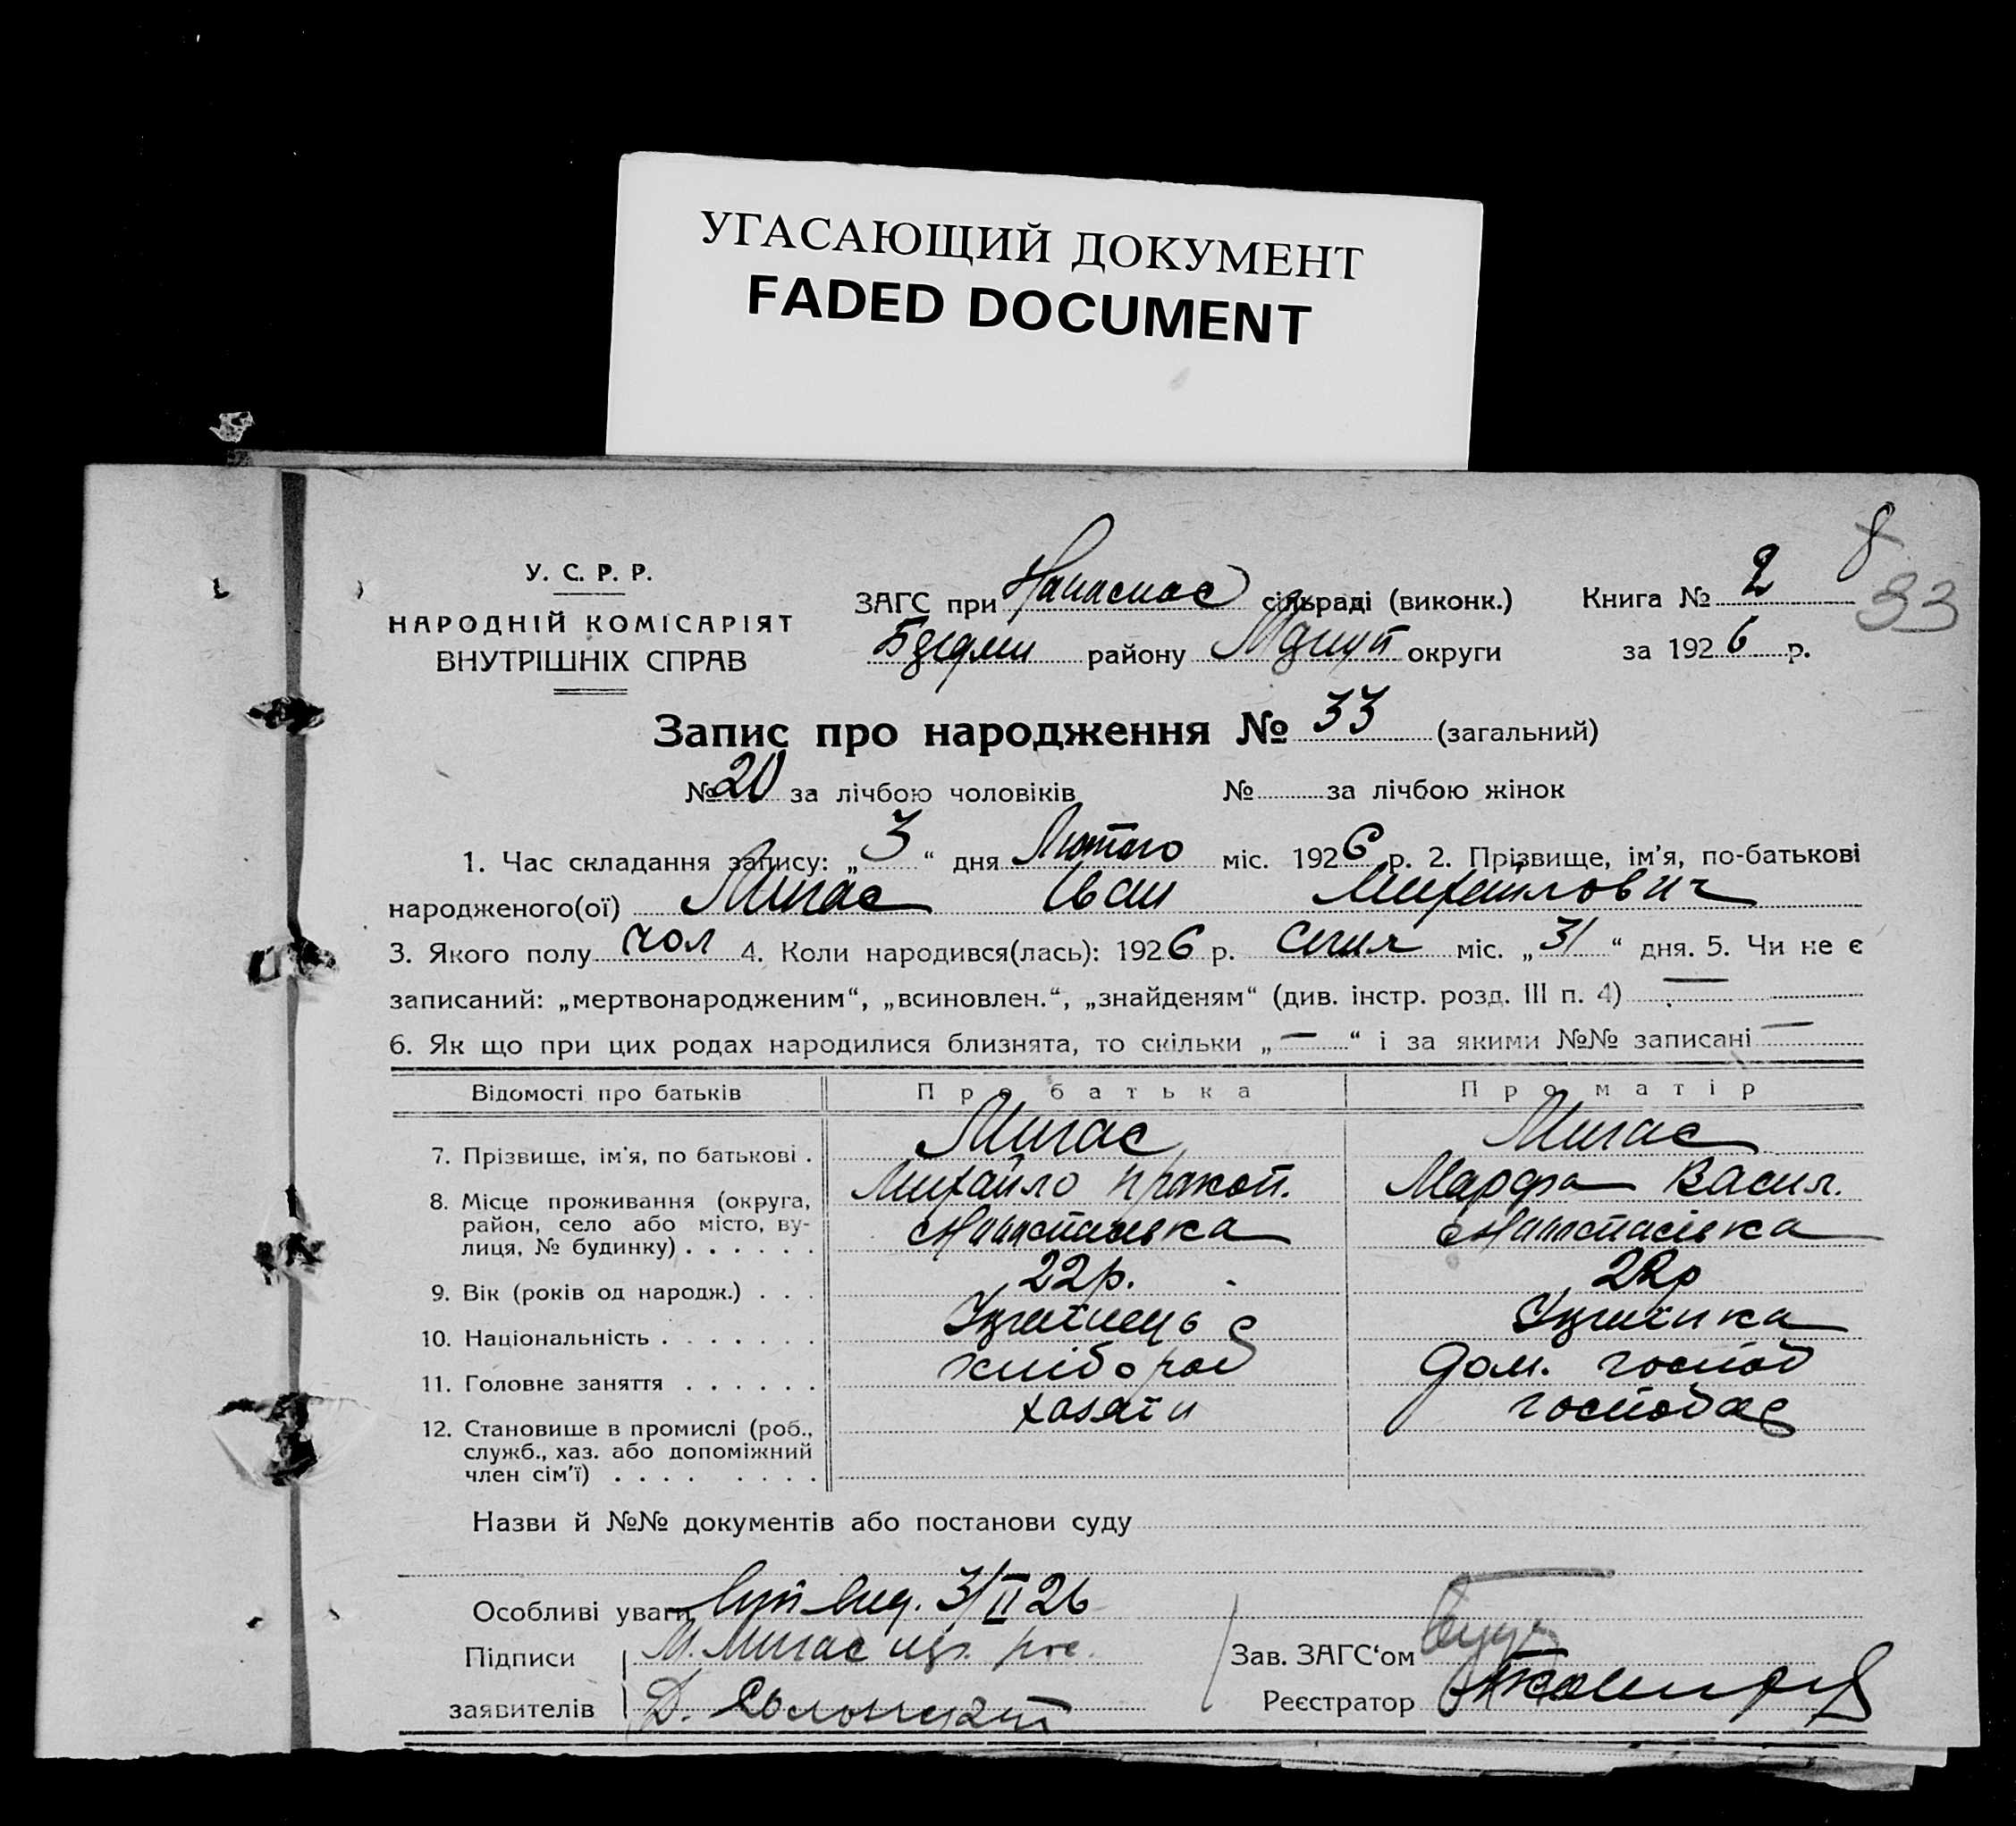 УГАСАЮЩИЙ ДОКУМЕНТ
FADED DOCUMENT
8
33
У. С. Р. Р.
НАРОДНІЙ КОМІСАРІЯТ
ВНУТРІШНІХ СПРАВ
ЗАГС при сільраді (виконк.)
району округи
Книга № 2
за 1926 р.
Запис про народження № 33 (загальний)
№ 20 за лічбою чоловіків № за лічбою жінок
1. Час складання запису: „3“ дня Лютого міс. 1926 р. 2. Прізвище, ім'я, по-батькові
народженого(ої) Мигас Іван Михайлович
3. Якого полу чол 4. Коли народився(лась): 1926 р. Січня міс. „31“ дня. 5. Чи не є
записаний: „мертвонародженим“, „всиновлен.“, „знайденям“ (див. інстр. розд. III п. 4) —
6. Як що при цих родах народилися близнята, то скільки „—“ і за якими №№ записані —
Відомості про батьків Про батька Про матір
7. Прізвище, ім'я, по батькові . Мигас Мигас
Михайло Прокоп. Марфа Васил.
8. Місце проживання (округа,
район, село або місто, ву-
лиця, № будинку) . . . . . .
9. Вік (років од народж.) . . . 22р. 22р
10. Національність . . . . . . . Українець Українка
11. Головне заняття . . . . . . хлібороб дом. господ
12. Становище в промислі (роб., хазяїн господар
служб., хаз. або допоміжний
член сім'ї) . . . . . . . .
Назви й №№ документів або постанови суду
Особливі уваги 3/II 26
Підписи М. Мигас
заявителів Д.
Зав. ЗАГС'ом
Реєстратор